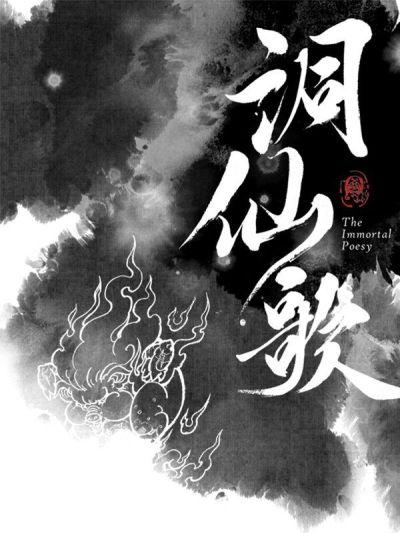 詞仙歌
The
Immortal
Poesy